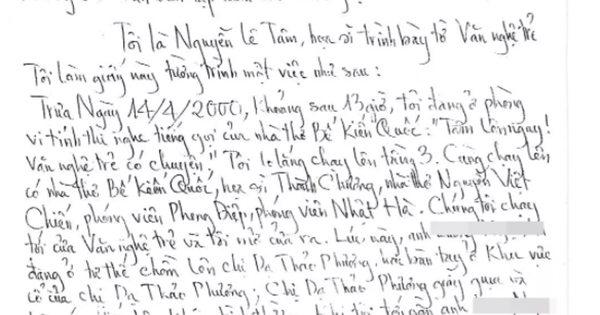 Tôi là Nguyễn Lê Tâm, họa sĩ trình bày tờ Văn nghệ trẻ
Tôi làm giấy này tường trình một việc như sau:
Trưa Ngày 14/4/2000, Khoảng sau 13 giờ, tôi đang ở phòng
vi tính thì nghe tiếng gọi của nhà thơ Bế Kiến Quốc: "Tâm lên ngay!
Văn nghệ trẻ có chuyện." Tôi lo lắng chạy lên tầng 3. Cùng chạy lên
có nhà thơ Bế Kiến Quốc, họa sĩ Thành Chương, nhà thơ Nguyễn Việt
Chiến, phóng viên Phong Điệp, phóng viên Nhật Hà. Chúng tôi chạy
tới cửa Văn nghệ trẻ và tôi mở cửa ra. Lúc này, anh
đang ở tư thế chồm lên chị Dạ Thảo Phương, hai bàn tay ở Khu vực
cổ của chị Dạ Thảo Phương; Chị Dạ Thảo Phương giãy giụa và